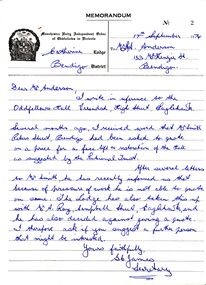 MEMORANDUM
Manchester Unity Independent Order
of Oddfellows in Victoria
No. 2
Catherine Lodge
Bendigo District
17th September 1974
Mr. Anderson
153 McKenzie St.
Bendigo.
Dear Mr Anderson
I write in reference to the
Oddfellows Hall Verandah, High Street Eaglehawk.
Several months ago, I received word that Mr Smith
Street Bendigo had been asked to quote
on a price for a face lift & restoration of the Hall
as suggested by the National Trust.
After several letters
to Mr Smith he has recently informed us that
because of pressure of work he is not able to quote
on same. The Lodge has also taken this up
with Mr A. Roy, Simpsons Street, Eaglehawk and
he has also decided against giving a quote.
I therefore ask if you suggest a further person
that might be interested.
Yours faithfully,
James
Secretary